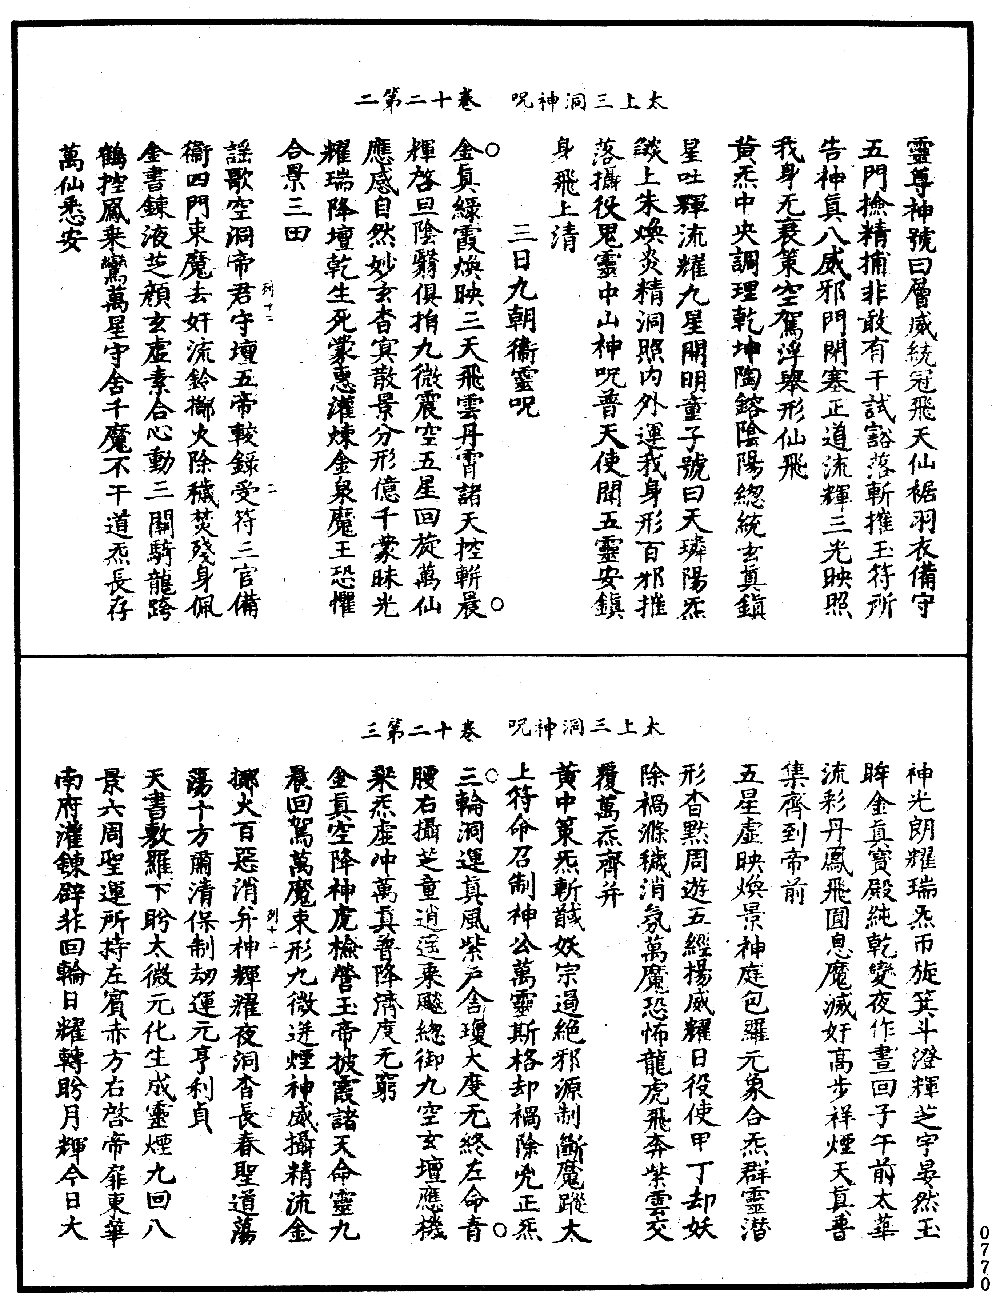 太上三洞神呪　卷十二第二
靈尊神號曰層威統冠飛天仙裾羽衣備守
五門撿精捕非敢有干試豁落斬摧玉符所
告神真八威邪門閉塞正道流輝三光映照
我身无衰策空駕浮舉形仙飛
黃炁中央調理乾坤陶鎔陰陽總統玄真鎮
星吐輝流耀九星開明童子號曰天璘陽炁
燄上朱煥炎精洞照內外運我身形百邪摧
落攝役鬼靈中山神呪普天使聞五靈安鎮
身飛上清
三日九朝衞靈呪
金真綠霞煥映三天飛雲丹霄諸天控軿晨
輝啓旦陰翳俱拍九微震空五星回旋萬仙
應感自然妙玄杳冥散景分形億千蒙昧光
耀瑞降壇乾生死蒙惠灌煉金泉魔王恐懼
合景三田
謡歌空洞帝君守壇五帝較錄受符三官備
衞四門束魔去奸流鈴擲火除穢焚殘身佩
金書鍊液芝顏玄虛素合心動三關騎龍跨
鶴控鳳乘鸞萬星守舍千魔不干道炁長存
萬仙悉安
列十二
二
太上三洞神呪　卷十二第三
神光朗耀瑞炁帀旋箕斗澄輝芝宇晏然玉
眸金真寶殿純乾變夜作晝回子午前太華
流彩丹鳳飛圓息魔滅奸高步祥煙天真普
集齊到帝前
五星虛映煥景神庭包羅元象合炁群靈潜
形杳默周遊五經揚威耀日役使甲丁却妖
除禍滌穢消氛萬魔恐怖龍虎飛奔紫雲交
覆萬炁齊并
黃中策炁斬馘妖宗過絕邪源制斷魔蹤大
上符命召制神公萬靈斯格却禍除兇正炁
三輪洞運真風紫戸含瓊大度无終左命青
腰右攝芝童逍遥乘飈總御九空玄壇應機
聚炁虛冲萬真普降濟度无窮
金真空降神虎檢營玉帝披霞諸天命靈九
晨回駕萬魔束形九微迸煙神威攝精流金
擲火百惡消并神輝耀夜洞杳長春聖道蕩
蕩十方肅清保制劫運元亨利貞
天書敷羅下盼太微元化生成靈煙九回八
景六周聖運所持左賓赤方右啓帝扉東華
南府灌鍊辟非回輪日耀轉盼月輝今日大
列十二
0770